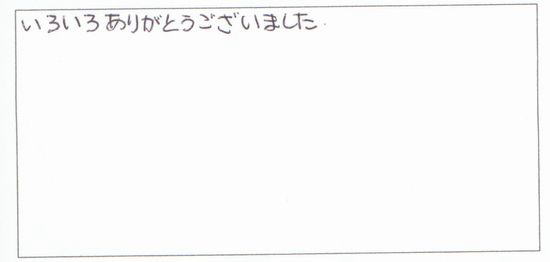 いろいろありがとうございました.